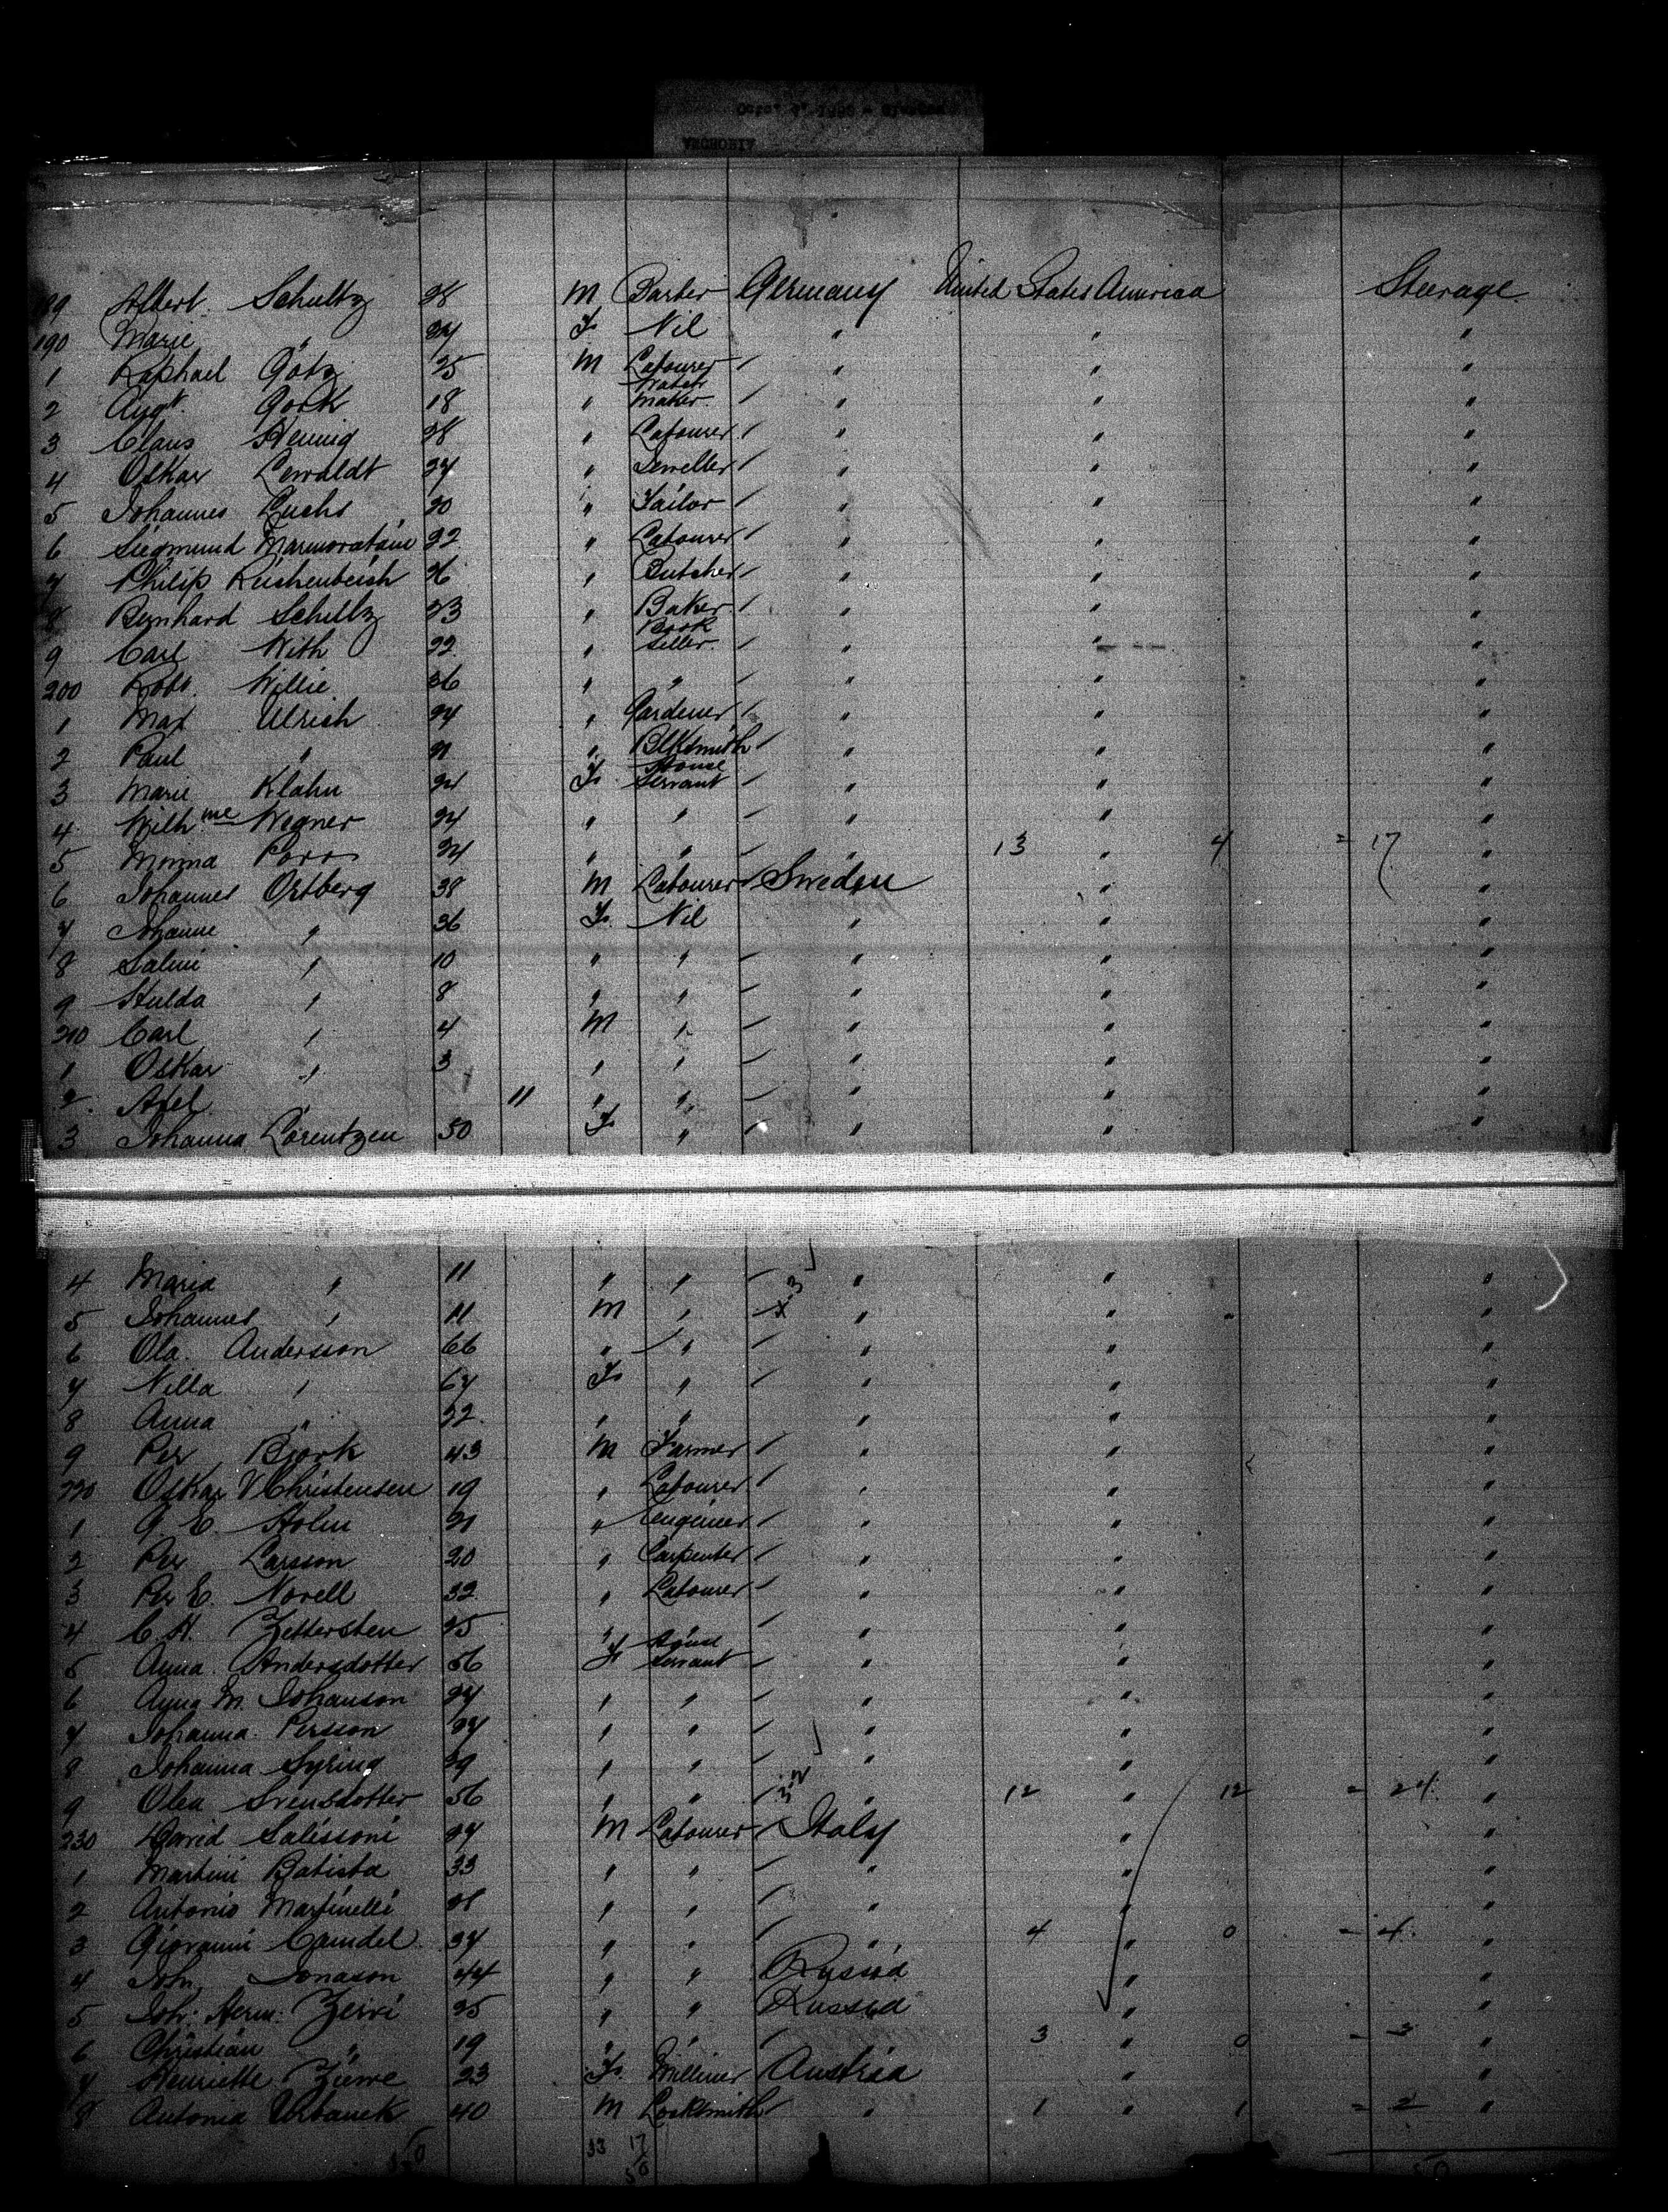 199 Albert Schultz 28 M Barber Germany United States America Steerage
190 Marie " 24 F Nil " " "
1 Raphael Götz 25 M Labourer " " "
2 Augt. Gork 18 " Watch maker " " "
3 Claus Hennig 28 " Labourer " " "
4 Oskar Lewaldt 27 " Jeweller " " "
5 Johannes Luchs 20 " Tailor " " "
6 Siegmund 22 " Labourer " " "
7 Philip 26 " Butcher " " "
8 Bernhard Schultz 23 " Baker " " "
9 Carl With 22 " Book seller " " "
200 Robt. Willie 36 " " " " "
1 Max Ulrich 24 " Gardener " " "
2 Paul " 21 " Blksmith " " "
3 Marie Klahn 21 F House Servant " " "
4 Wilhme Wegner 24 " " " " "
5 24 " " " 13 " 4 = 17 "
6 Johannes Ortberg 38 M Labourer Sweden " "
7 Johanne " 36 F Nil " " "
8 Salmi " 10 " " " " "
9 Hulda " 8 " " " " "
210 Carl " 4 M " " " "
1 Oskar " 3 " " " " "
2 Axel " 11 " " " " "
3 Johanna Lorentzen 50 F " " " "
4 Maria " 11 " " " " "
5 Johannes " 11 M " x-3 " " "
6 Ola Andersson 66 " " " " "
7 Nilla " 67 F " " " "
8 Anna " 22 " " " " "
9 Per Bjork 43 M Farmer " " "
220 Oskar V Christensen 19 " Labourer " " "
1 G. E. Holm 21 " Engineer " " "
2 Per Larsson 20 " Carpenter " " "
3 Per E. Norell 32 " Labourer " " "
4 C. H. Zettersten 25 " " " " "
5 Anna Andersdotter 56 F House servant " " "
6 Anna M. Johanson 27 " " " " "
7 Johanna Persson 27 " " " " "
8 Johanna Syring 29 " " " " "
9 Olea Svensdotter 56 " " " 12 " 12 = 24 "
230 David Salissoni 27 M Labourer Italy " "
1 Martini Batista 33 " " " " "
2 Antonio Martinelli 28 " " " " "
3 Giovanni Camdel 37 " " " 4 " 0 = 4 "
4 Joh. Jonason 44 " " Russia " "
5 Joh. Herm. Zeiri 25 " " Russia " "
6 Christian " 19 " " 3 " 0 = 3
7 Henriette 23 F Milliner Austria "
8 Antonia Urbanek 40 M Locksmith " 1 " 1 = 2 "
33 17
50
50